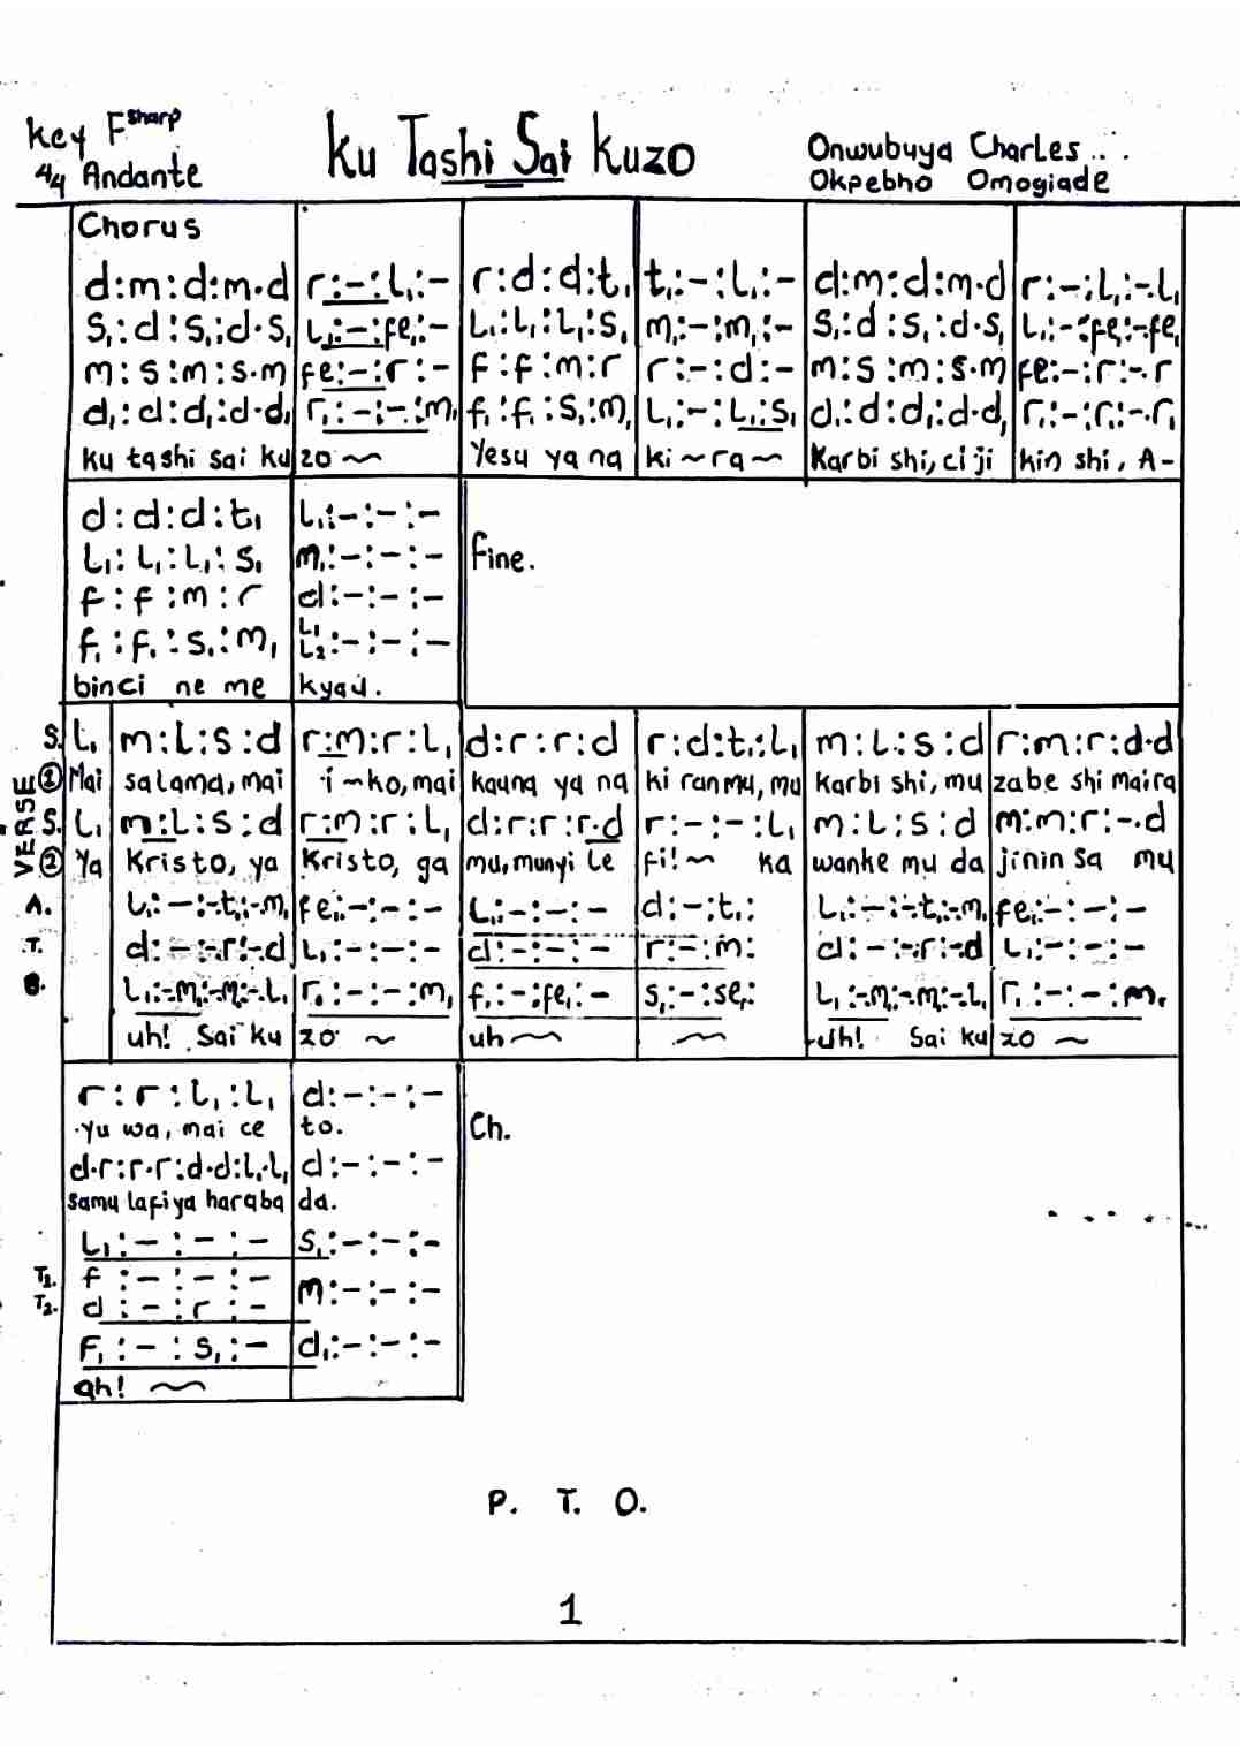 Key F sharp
4/4 Andante
Ku Tashi Sai Kuzo
Onwubuya Charles
Okpebho Omogiade
Chorus
d:m:d:m.d | r:-:l₁:- | r:d:d:t₁ | t₁:-:l₁:- | d:m:d:m.d | r:-:l₁:-.l₁
s₁:d:s₁:d.s₁ | l₁:-:fe₁:- | l₁:l₁:l₁:s₁ | m₁:-:m₁:- | s₁:d:s₁:d.s₁ | l₁:-:fe₁:-.fe₁
m:s:m:s.m | fe:-:r:- | f:f:m:r | r:-:d:- | m:s:m:s.m | fe:-:r:-.r
d₁:d:d₁:d.d₁ | r₁:-:-:m₁ | f₁:f₁:s₁:m₁ | l₁:-:l₁:s₁ | d₁:d:d₁:d.d₁ | r₁:-:r₁:-.r₁
ku tashi sai ku | zo ~ | Yesu ya na | ki ~ ra ~ | Karbi shi, ci ji | kin shi, A-
d:d:d:t₁ | l₁:-:-:-
l₁:l₁:l₁:s₁ | m₁:-:-:- | Fine.
f:f:m:r | d:-:-:-
f₁:f₁:s₁:m₁ | l₁ l₂:-:-:-
binci ne me | kyau.
VERSE
S. l₁ | m:l:s:d | r:m:r:l₁ | d:r:r:d | r:d:t₁:l₁ | m:l:s:d | r:m:r:d.d
① Mai | salama, mai | i~ko, mai | kauna ya na | ki ranmu, mu | Karbi shi, mu | zabe shi maira
S. l₁ | m:l:s:d | r:m:r:l₁ | d:r:r:r.d | r:-:-:l₁ | m:l:s:d | m:m:r:-.d
② Ya | Kristo, ya | Kristo, ga | mu, munyi le | fi! ~ ka | wanke mu da | jinin sa mu
A. l₁:-:-.t₁:-.m₁ | fe₁:-:-:- | l₁:-:-:- | d:-:t₁: | l₁:-:-.t₁:-.m₁ | fe₁:-:-:-
T. d:-:-.r:-.d | l₁:-:-:- | d:-:-:- | r:-:m: | d:-:-.r:-.d | l₁:-:-:-
B. l₁:-.m₁:-.m₁:-.l₁ | r₁:-:-:m₁ | f₁:-:fe₁:- | s₁:-:se₁: | l₁:-.m₁:-.m₁:-.l₁ | r₁:-:-:m₁
uh! Sai ku | zo ~ | uh ~ | ~ | uh! Sai ku | zo ~
r:r:l₁:l₁ | d:-:-:-
yu wa, mai ce | to. | Ch.
d.r:r.r:d.d:l₁.l₁ | d:-:-:-
samu lafiya haraba | da.
l₁:-:-:- | s₁:-:-:-
T1. f:-:-:- | m:-:-:-
T2. d:-:r:-
f₁:-:s₁:- | d₁:-:-:-
ah! ~
P. T. O.
1